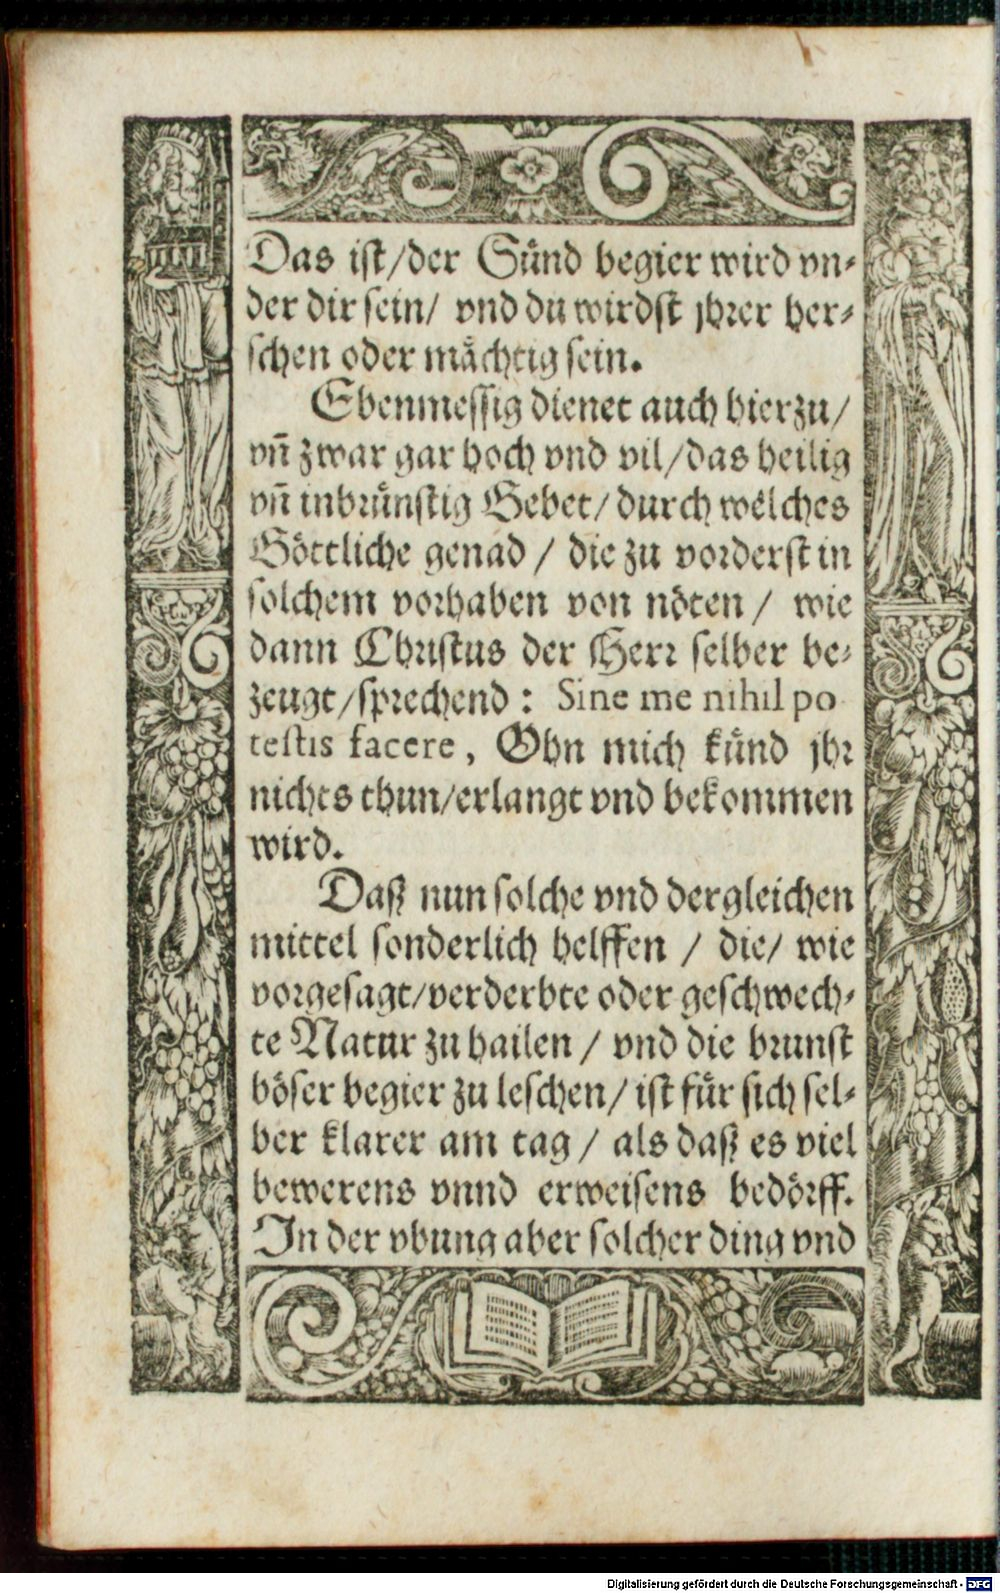 Das ist/der Sünd begier wird vn-
der dir sein/ vnd du wirdst jhrer her-
schen oder mächtig sein.
Ebenmessig dienet auch hierzu/
vñ zwar gar hoch vnd vil/das heilig
vñ inbrünstig Gebet/ durch wélches
Göttliche genad / die zu vorderst in
solchem vorhaben von nöten / wie
dann Christus der Herr selber be-
zeugt/sprechend : Sine me nihil po
testis facere, Ohn mich künd jhr
nichts thun/erlangt vnd bekommen
wird.
Daß nun solche vnd dergleichen
mittel sonderlich helffen / die/ wie
vorgesagt/verderbte oder geschwech-
te Natur zu hailen / vnd die brunst
böser begier zu leschen/ ist für sich sel-
ber klarer am tag / als daß es viel
bewerens vnnd erweisens bedörff.
In der vbung aber solcher ding vnd
Digitalisierung gefördert durch die Deutsche Forschungsgemeinschaft - DFG